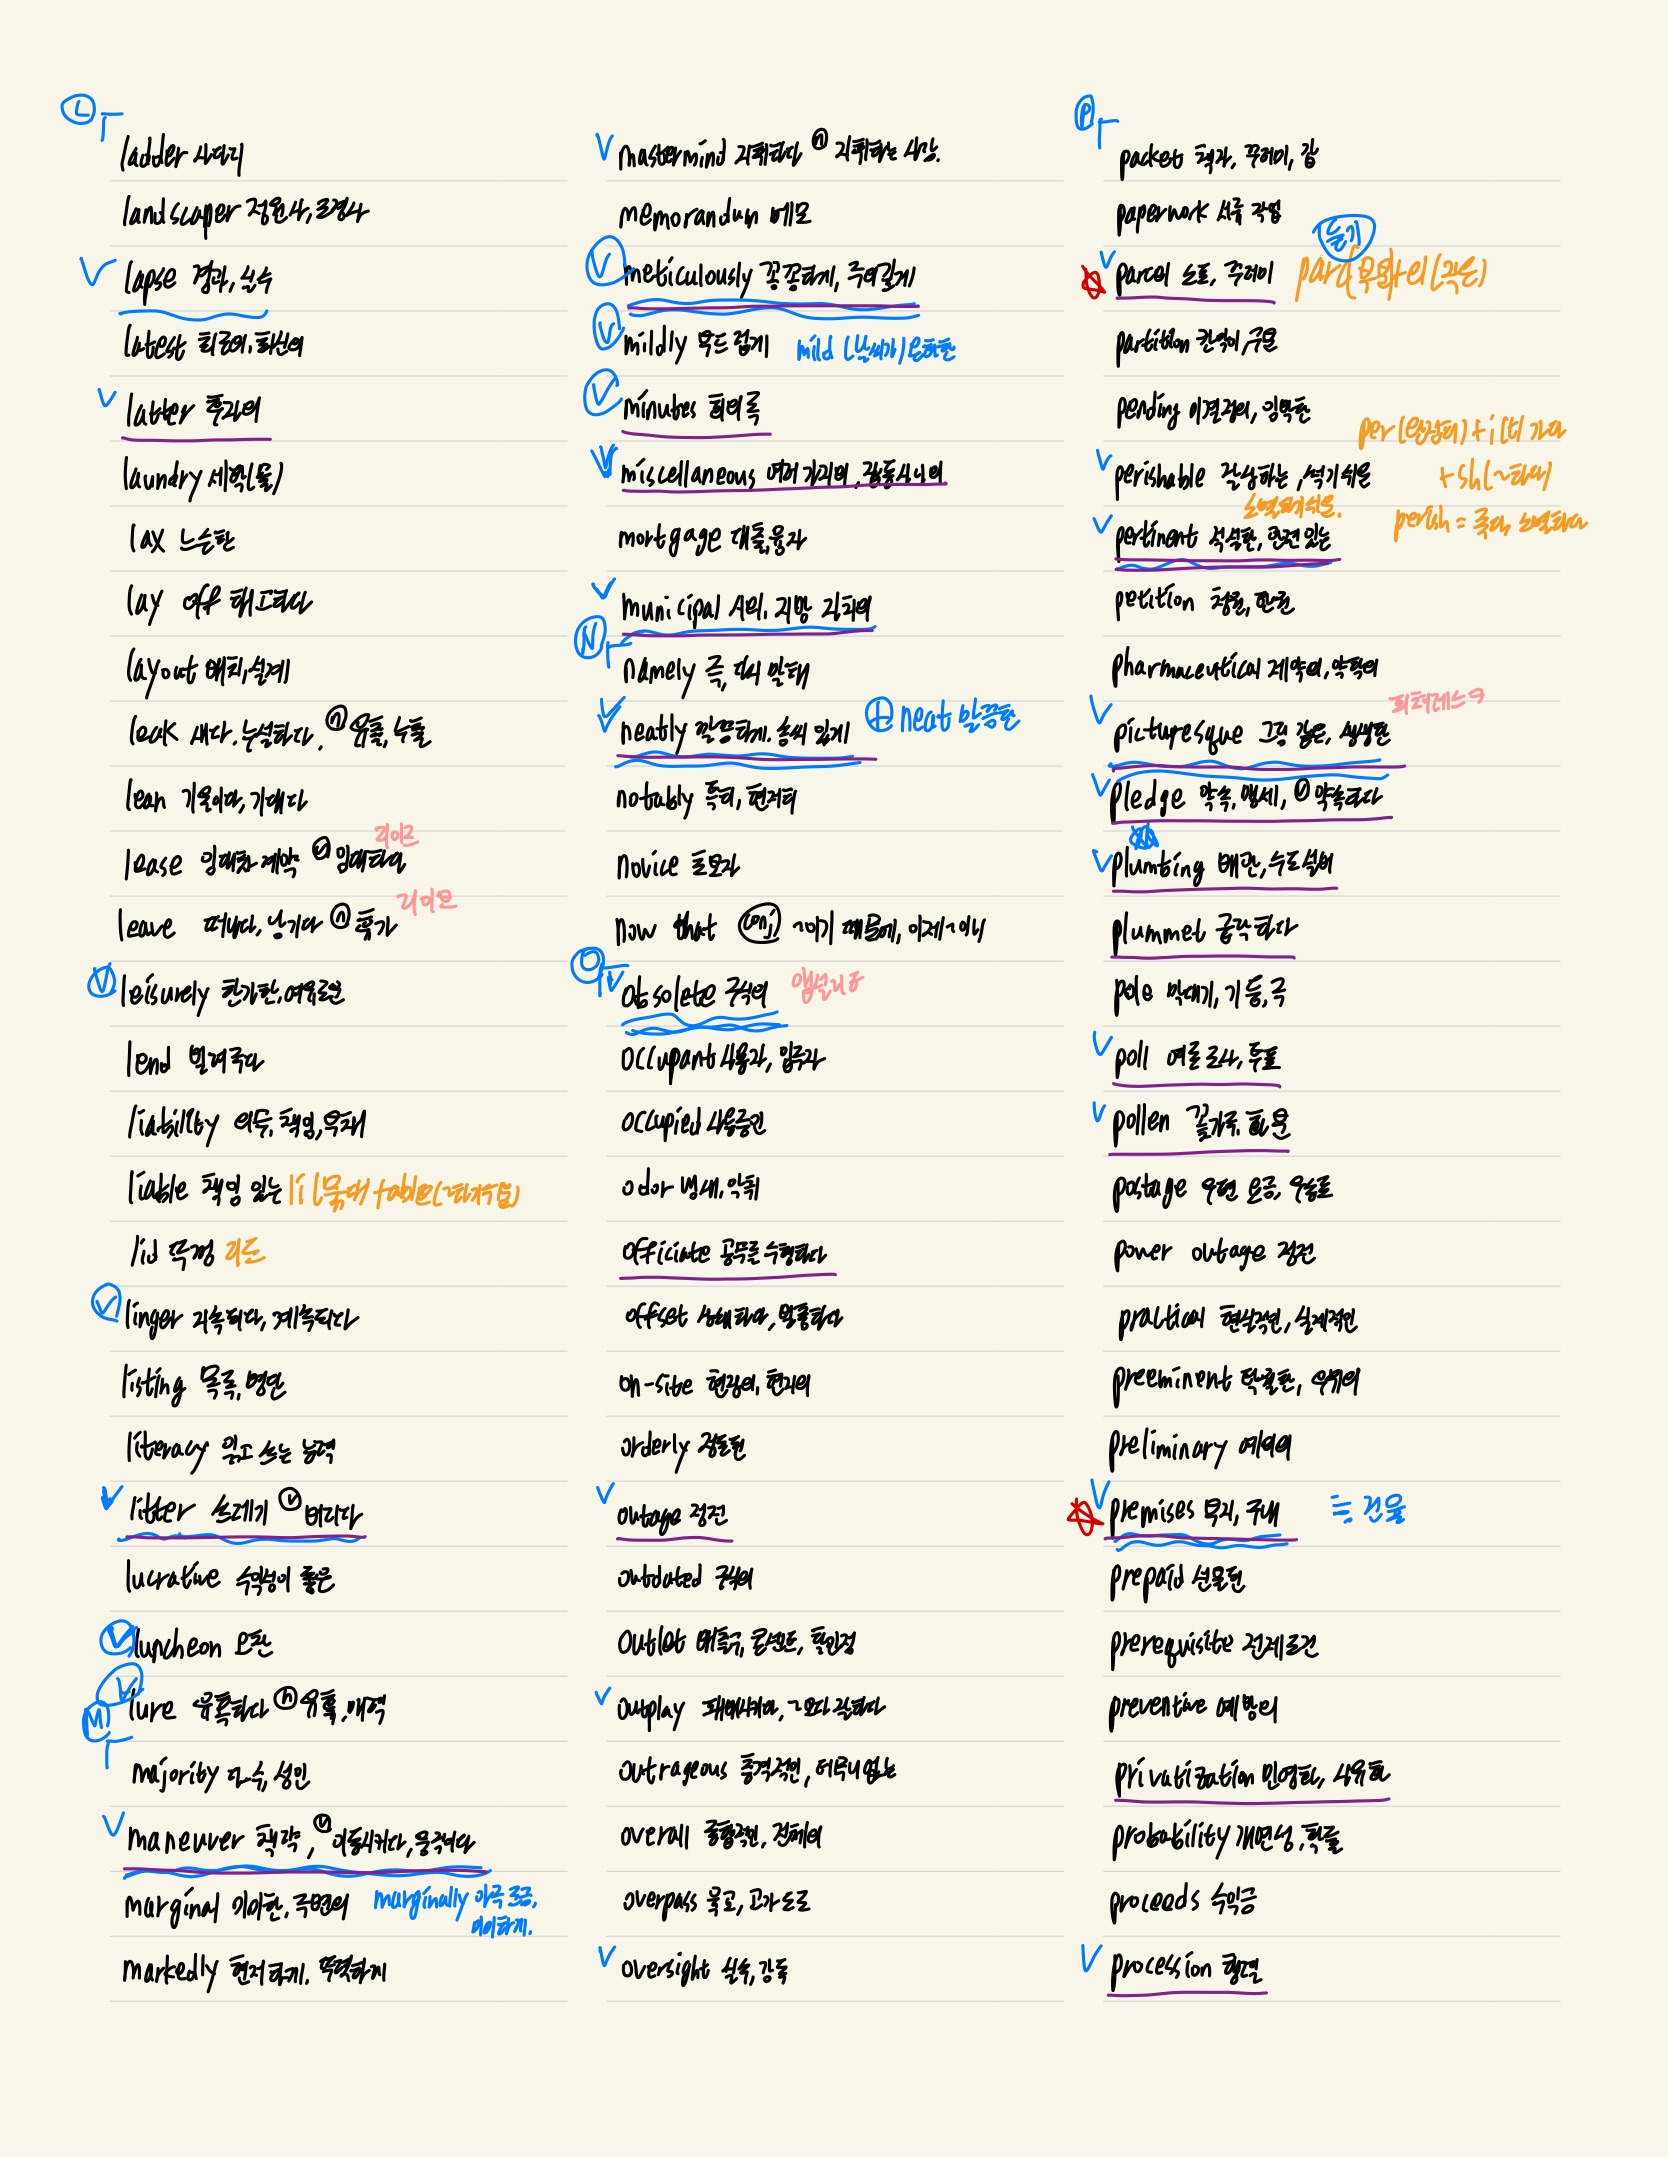 L
ladder 사다리
landscaper 정원사, 조경사
lapse 경과, 실수
latest 최근의, 최신의
latter 후자의
laundry 세탁(물)
lax 느슨한
lay off 해고하다
layout 배치, 설계
leak 새다, 누설하다, n 유출, 누출
lean 기울이다, 기대다
리이즈
lease 임대차 계약 v 임대하다
leave 떠나다, 남기다 n 휴가
leisurely 한가한, 여유로운
lend 빌려주다
liability 의무, 책임, 부채
liable 책임 있는
lid 뚜껑 리드
linger 지속되다, 계속되다
listing 목록, 명단
literacy 읽고 쓰는 능력
litter 쓰레기 v 버리다
lucrative 수익성이 좋은
luncheon 오찬
lure 유혹하다 n 유혹, 매력
M
majority 다수, 성인
maneuver 책략, v 이동시키다, 움직이다
marginal 미미한, 주변의 marginally 아주 조금,
미미하게.
markedly 현저하게, 뚜렷하게
mastermind 지휘하다 n 지휘하는 사람.
memorandum 메모
meticulously 꼼꼼하게, 주의깊게
mildly 부드럽게 mild (날씨가) 온화한
minutes 회의록
miscellaneous 여러 가지의, 잡동사니의
mortgage 대출, 융자
municipal 시의, 지방 자치의
N
namely 즉, 다시 말해
neatly 깔끔하게, 솜씨 있게 + neat 말끔한
notably 특히, 현저히
novice 초보자
now that conj ~이기 때문에, 이제~이니
O
obsolete 구식의
occupant 사용자, 입주자
occupied 사용중인
odor 냄새, 악취
officiate 공무를 수행하다
offset 상쇄하다, 벌충하다
on-site 현장의, 현지의
orderly 정돈된
outage 정전
outdated 구식의
outlet 배출구, 콘센트, 할인점
outplay 패배시키다, ~보다 잘하다
outrageous 충격적인, 터무니없는
overall 종합적인, 전체의
overpass 육교, 고가도로
oversight 실수, 감독
P
packet 책자, 꾸러미, 갑
paperwork 서류 작업
듣기
parcel 소포, 꾸러미
partition 칸막이, 구분
pending 미결정의, 임박한
per(완전히) + i(t) 가다
perishable 잘 상하는, 썩기 쉬운 + sh(~하다)
소멸되기 쉬운.
pertinent 적절한, 관련 있는 perish = 죽다, 소멸하다
petition 청원, 탄원
pharmaceutical 제약의, 약학의
픽쳐레스크
picturesque 그림 같은, 생생한
pledge 약속, 맹세, v 약속하다
plumbing 배관, 수도 설비
plummet 급락하다
pole 막대기, 기둥, 극
poll 여론 조사, 투표
pollen 꽃가루, 화분
postage 우편 요금, 우송료
power outage 정전
practical 현실적인, 실제적인
preeminent 탁월한, 우위의
preliminary 예비의
premises 부지, 구내 = 건물
prepaid 선불된
prerequisite 전제조건
preventive 예방의
privatization 민영화, 사유화
probability 개연성, 확률
proceeds 수익금
procession 행렬